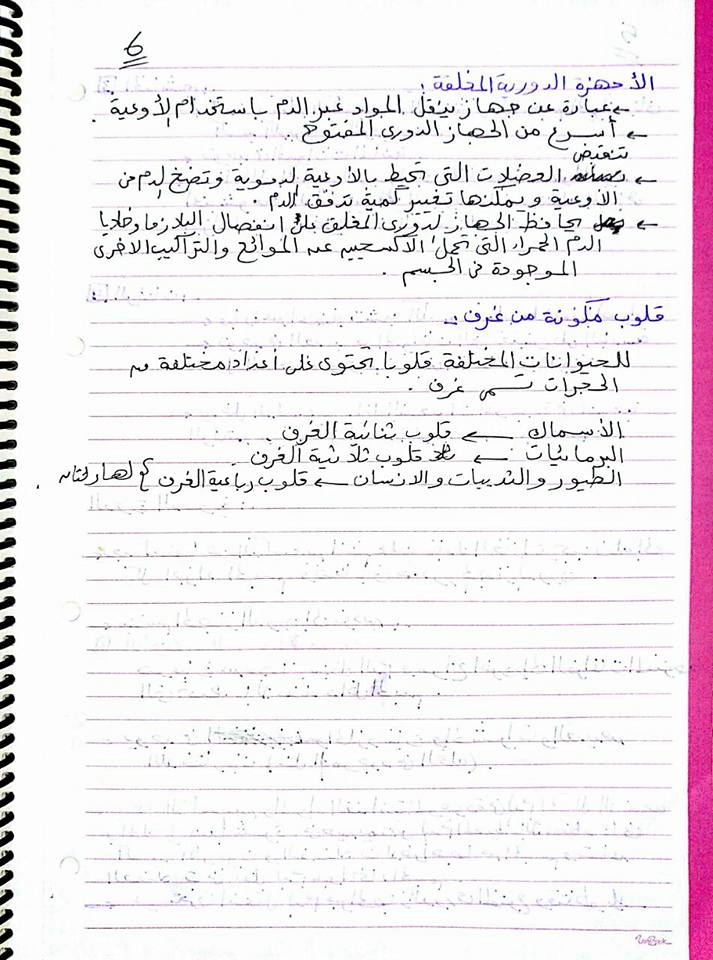 6
الأجهزة الدورية المغلقة :
← عبارة عن جهاز ينقل المواد عبر الدم باستخدام الأوعية .
← أسرع من الجهاز الدورى المفتوح .
تنقبض
← العضلات التى تحيط بالأوعية الدموية وتضخ الدم من
الأوعية ويمكنها تغيير كمية تدفق الدم .
← يحافظ الجهاز الدورى المغلق على انفصال البلازما وخلايا
الدم الحمراء التى تحمل الأكسجين عن الموائع والتراكيب الاخرى
الموجودة فى الجسم .
قلوب مكونة من غرف :
للحيوانات المختلفة قلوبا تحتوى على أعداد مختلفة من
الحجرات تسمى غرف .
الأسماك ← قلوب ثنائية الغرف .
البرمائيات ← قلوب ثلاثية الغرف
الطيور والثدييات والانسان ← قلوب رباعية الغرف لها رئتان .